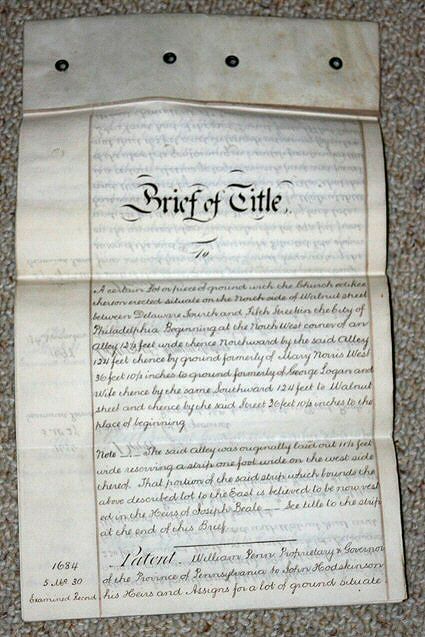 Brief of Title,
To
A certain Lot or piece of ground with the Church edifice
thereon erected situate on the North side of Walnut street
between Delaware Fourth and Fifth Streets in the City of
Philadelphia Beginning at the North West corner of an
Alley 12½ feet wide thence Northward by the said Alley
124 feet thence by ground formerly of Mary Norris West
36 feet 10½ inches to ground formerly of George Logan and
Wife thence by the same Southward 124 feet to Walnut
street and thence by the said Street 36 feet 10½ inches to the
place of beginning
Note – The said Alley was originally laid out 11½ feet
wide reserving a strip one foot wide on the west side
thereof. That portion of the said strip which bounds the
above described lot to the East is believed to be now vest
ed in the Heirs of Joseph Beale – See title to the strip
at the end of this Brief.
1684
5 Mo 30
Examined Record
Patent. William Penn, Proprietary & Governor
of the Province of Pennsylvania to John Hodskinson
his Heirs and Assigns for a lot of ground situate